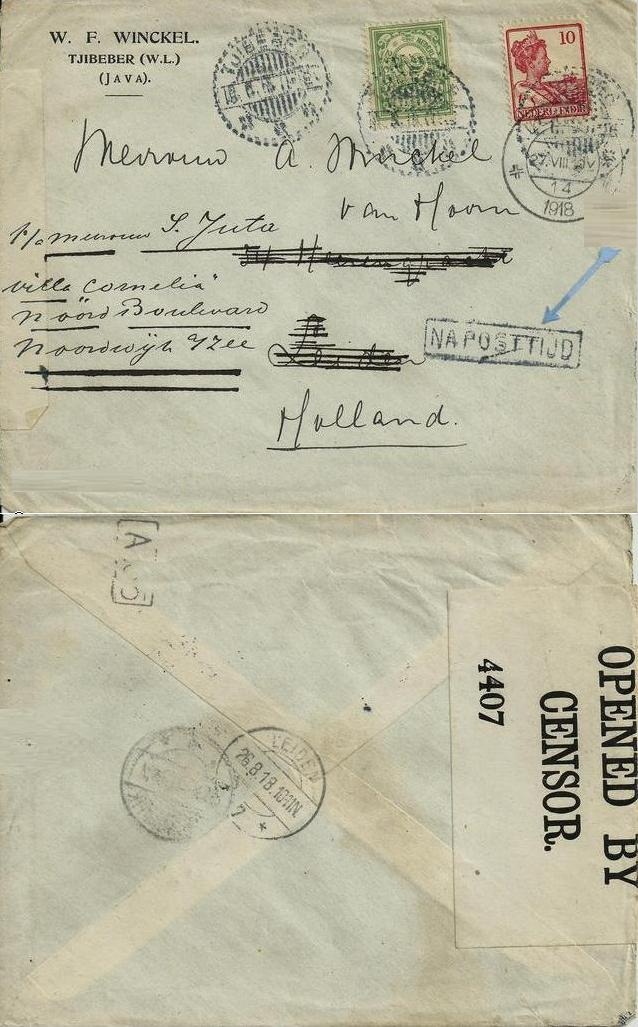 W. F. WINCKEL.
TJIBEBER (W.L.)
(JAVA).
TJIBEBER
10
NEDERL-INDIË
27.VIII
14
1918
Mevrouw A. Winckel
van Hoorn
p/a mevrouw S. Juta
villa Cornelia"
Noord Boulevard
Noordwijk Zee
NAPOSTTIJD
Leiden
Holland.
OPENED BY
CENSOR.
4407
LEIDEN
26.8.18.